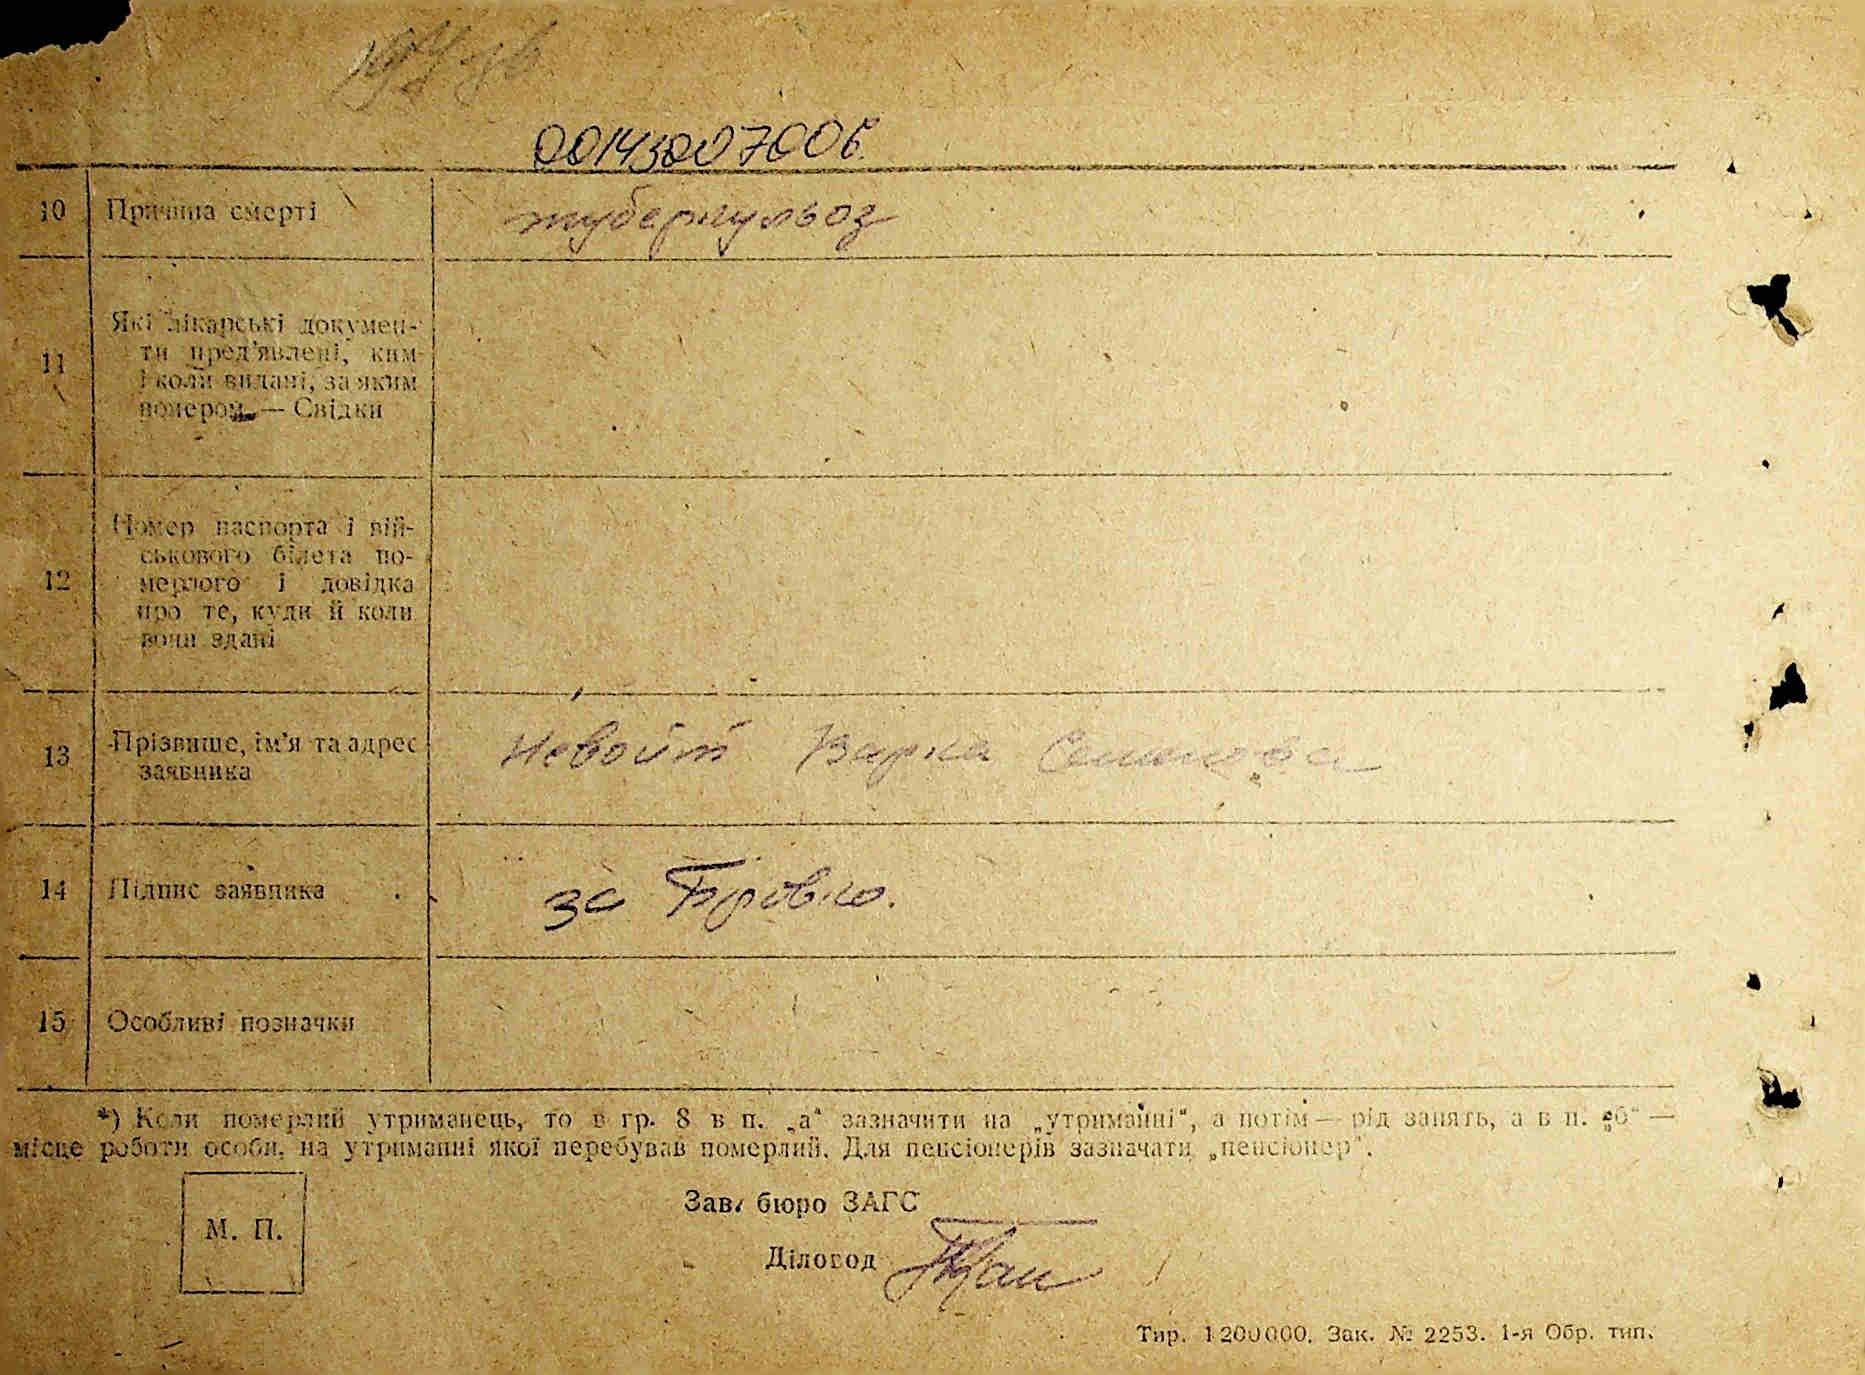 00143007006
10 Причина смерті туберкульоз
11 Які лікарські докумен-
ти пред'явлені, ким
і коли видані, за яким
номером — Свідки
12 Номер паспорта і вій-
ськового білета по-
мерлого і довідка
про те, куди й коли
вони здані
13 Прізвище, ім'я та адрес Невойт Вирка
заявника
14 Підпис заявника за
15 Особливі позначки
*) Коли померлий утриманець, то в гр. 8 в п. „а“ зазначити на „утриманні“, а потім — рід занять, а в п. „б“ —
місце роботи особи, на утриманні якої перебував померлий. Для пенсіонерів зазначати „пенсіонер“.
Зав. бюро ЗАГС
М. П.
Діловод
Тир. 1200000. Зак. № 2253. 1-я Обр. тип.